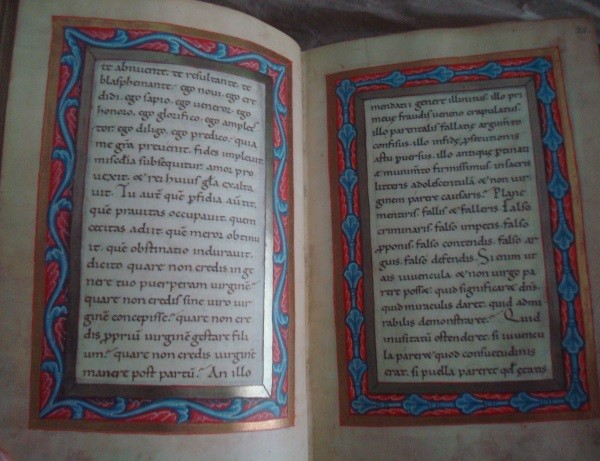 te abnuente. te resultante. te
blasphemante. ego noui. ego cre
didi. ego sapio. ego ueneror. ego
honoro. ego glorifico. ego amplec
tor. ego diligo. ego predico. quia
me gr̄a preuenit. fides impleuit
miscd̄ia subsequitur. amor pro
uexit. & rei huius gl̄a exalta
uit. Tu autē quē ꝑfidia
que prauitas occupauit. quem
cecitas adiit. quē meror obtinu
it. quē obstinatio indurauit.
dicito quare non credis in ge
nere tuo puerperam uirginē.
quare non credis sine uiro uir
ginē concepisse. quare non cre
dis ꝓpriū uirginē gestare fili
um. quare non credis uirginē
manere post partū. An illo
mendacii genere illiritus. illo pri
meuę fraudis ueneno crapulatus.
illo parentalis fallacię argumto
confisus. illo infidę ꝑsecutionis
astu puerfus. illo antiquę
& munimto firmissimus. in sacris
litteris adolescentulā & non uir
ginem parere causaris. Plane
mentiris. fallis & falleris. Falso
criminaris. falso impetis. falso
ꝓponis. falso contendis. falso ar
guis. falso defendis. Si enim ut
ais iuuencula & non uirgo pa
rere posset. quid significaret dn̄s.
quid miraculis daret. quid admi
rabilis demonstraret. Quid
inusitatū ostenderet. si iuuencu
la pareret quod consuetudinis
erat. si puella pareret qđ ęetatis